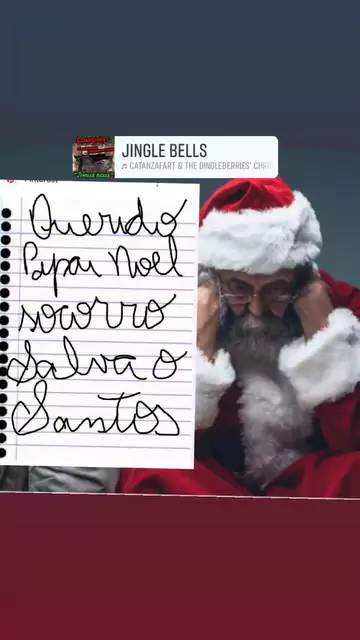 JINGLE BELLS
CATANZAFART & THE DINGLEBERRIES' CHR
"JINGLE BELLS"
Querido
Papai Noel
socorro
Salva o
Santos